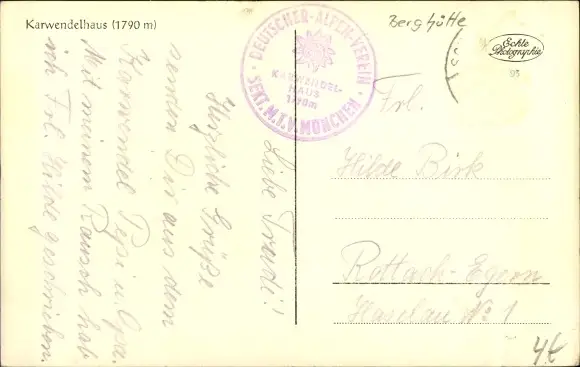 Karwendelhaus (1790 m)
DEUTSCHER-ALPEN-VEREIN
KARWENDEL-
HAUS
1790m
SEKT. M.T.V. MÜNCHEN
Berghütte
Echte
Photographie
93
Liebe Traudl!
Herzliche Grüße
senden Dir aus dem
Karwendel Pepi u. Opa.
Mit meinem Rausch hab
ich Frl. Hilde geschrieben.
Frl.
Hilde Birk
Rottach-Egern
Haslau No 1
4€